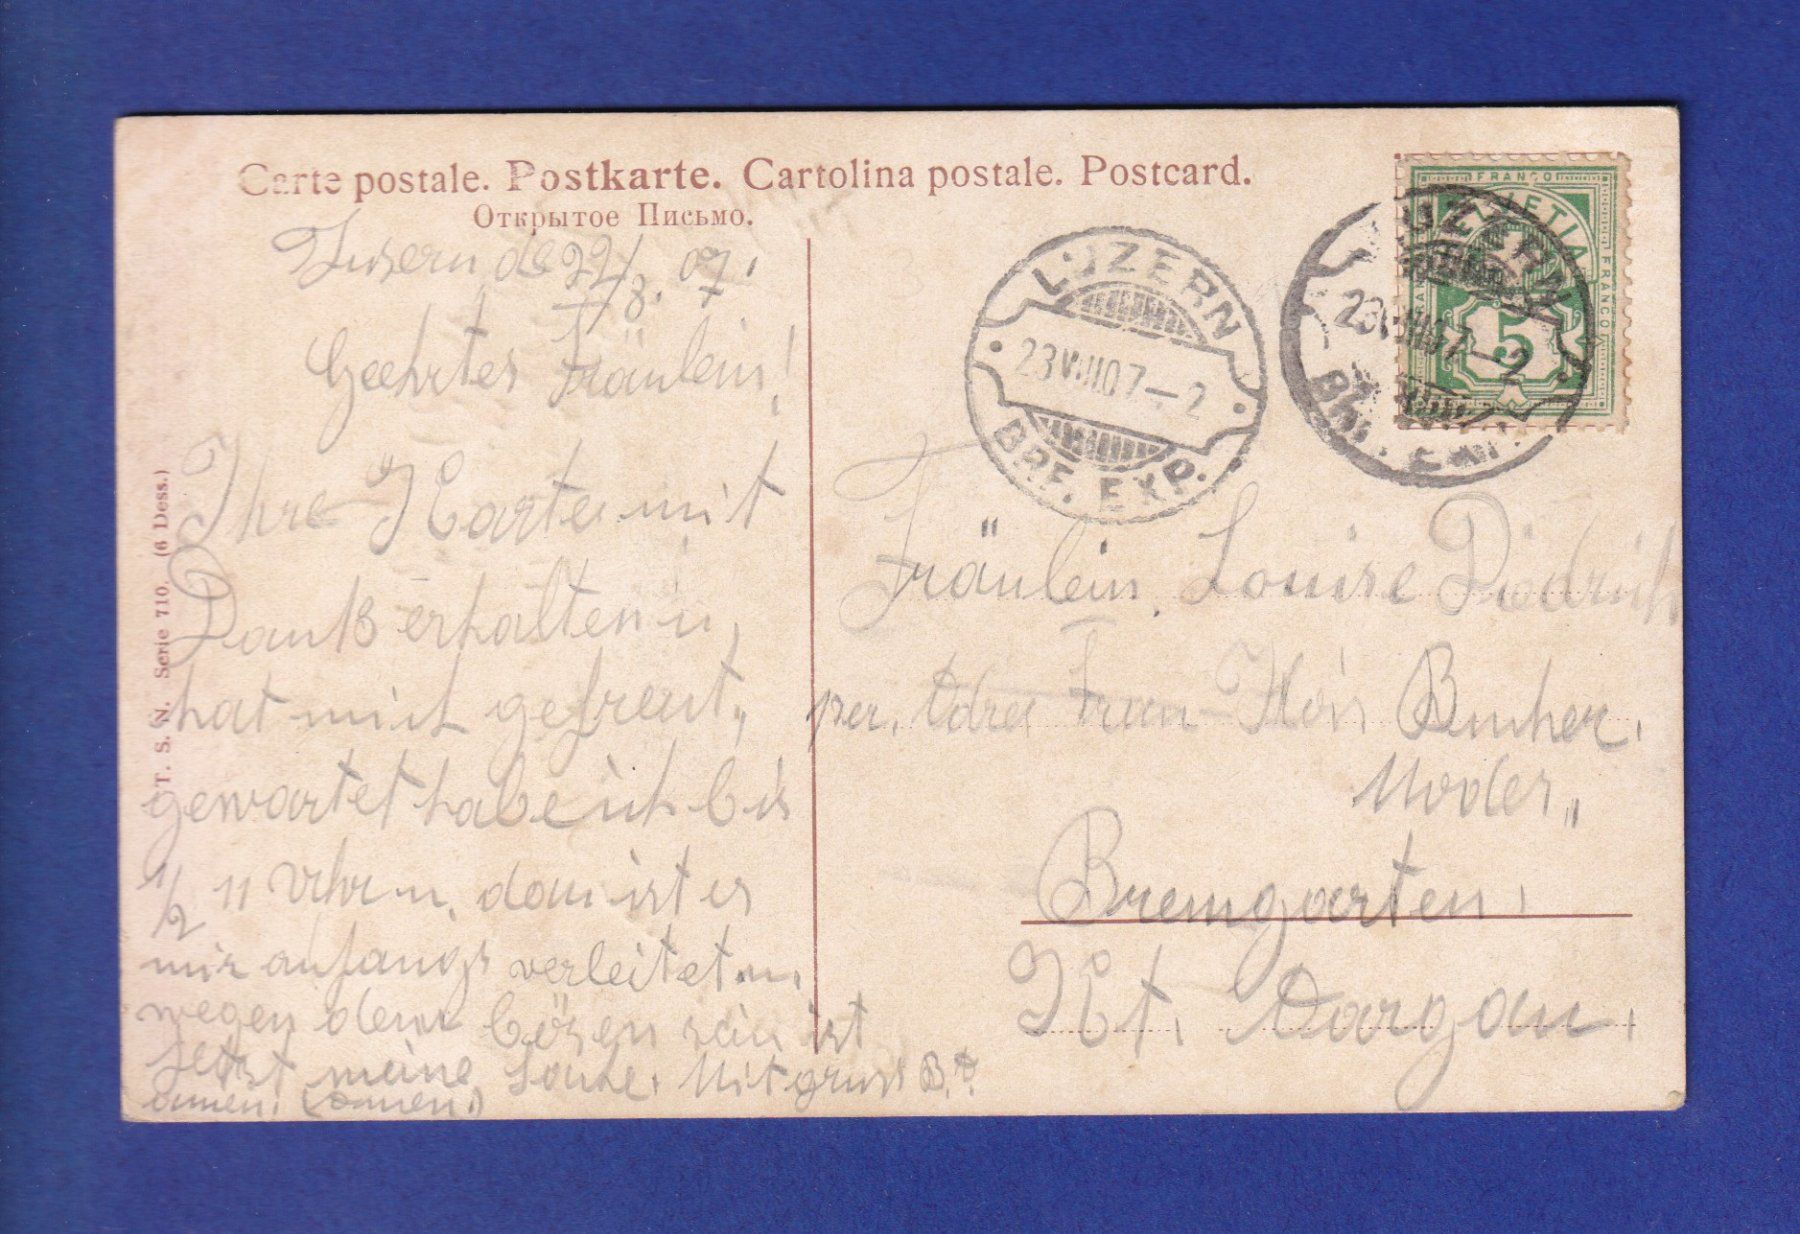 Carte postale. Postkarte. Cartolina postale. Postcard.
Открытое Письмо.
Luzern de 22/8. 07.
Geehrtes Fräulein!
Ihre Karte mit
Dank erhalten u,
hat mich gefreut,,
gewartet habe ich bis
1/2 11 Uhr u. dan ist es
mir anfangs verleitet u.
wegen dem bösen sein ist
jetzt meine Sache. Mit gruss B.
T. S. N. Serie 710. (6 Dess.)
LUZERN
23 VIII 07 — 2
BRF. EXP.
FRANCO
HELVETIA
FRANCO
5
LUZERN
23 VIII 07 — 2
BRF. EXP.
Fräulein Louise Diedrich
per. Adre Frau Bucher.
Moder,,
Bremgarten.
Kt. Aargau.